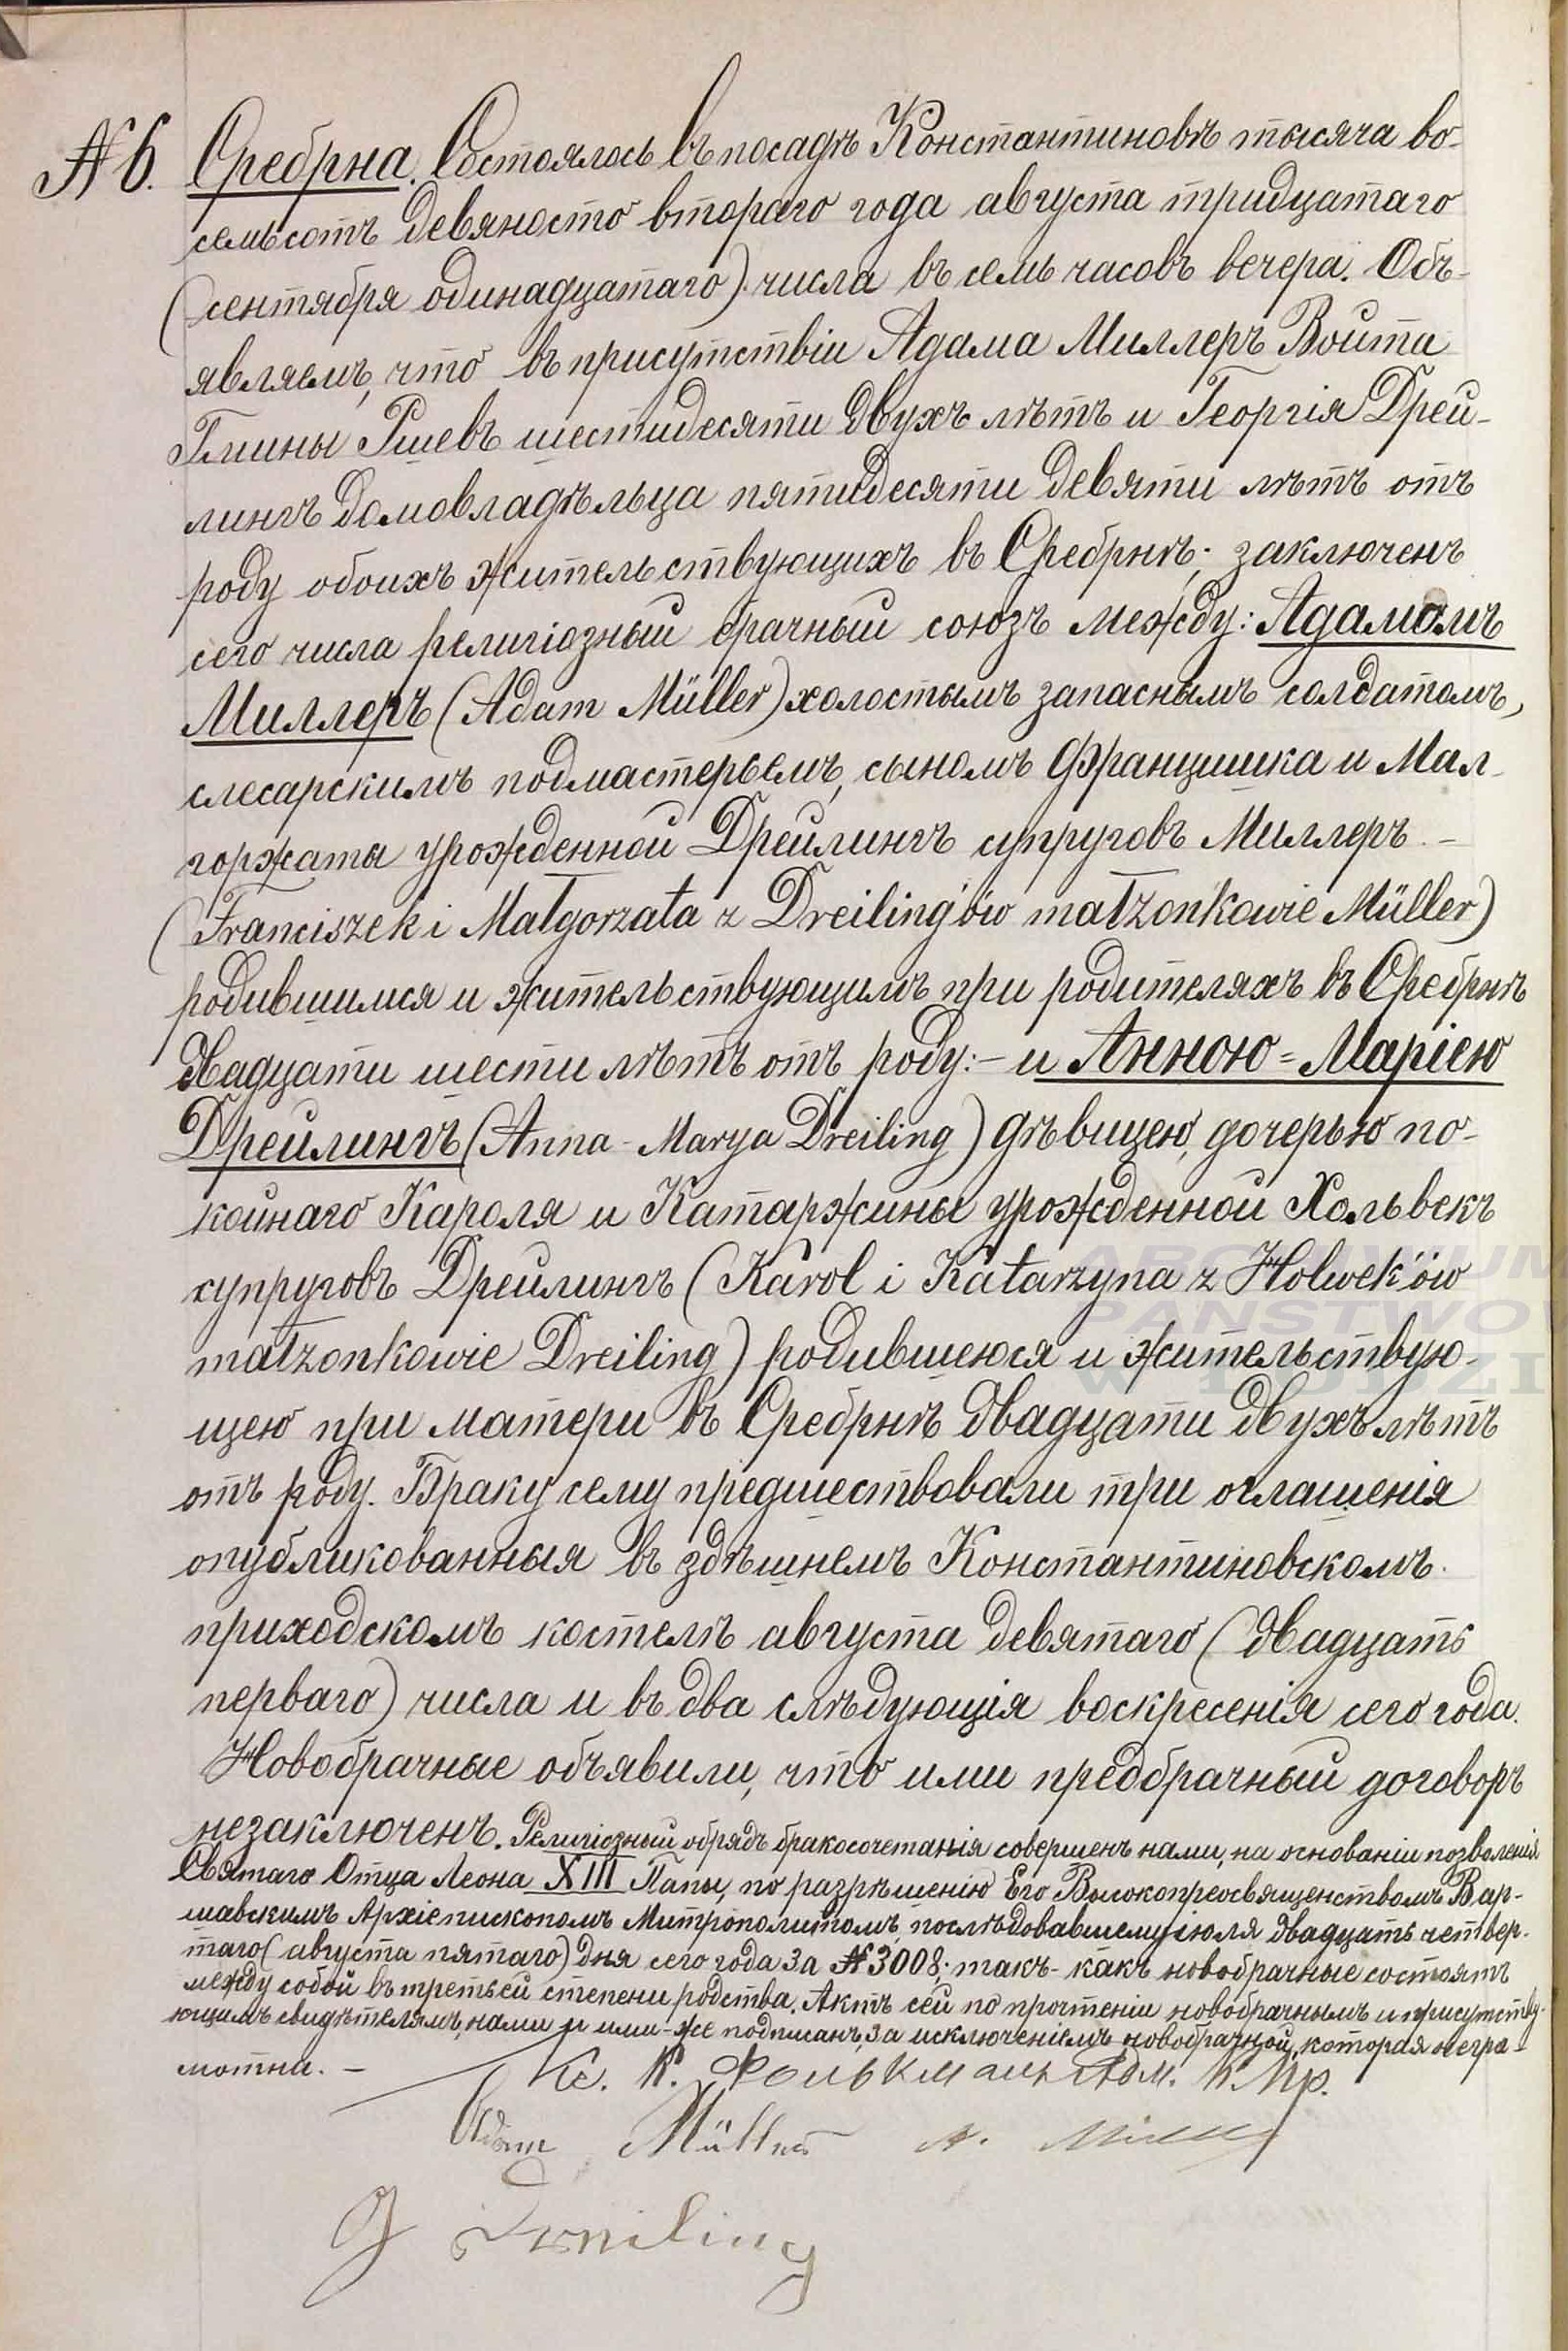 № 6. Сребрна. Состоялось въ посадѣ Константиновѣ тысяча во-
семьсотъ девяносто втораго года августа тридцатаго
(сентября одинадцатаго) числа въ семь часовъ вечера. Объ-
являемъ, что въ присутствіи Адама Миллеръ Войта
Гмины Ршевъ шестидесяти двухъ лѣтъ и Георгія Дрей-
лингъ домовладѣльца пятидесяти девяти лѣтъ отъ
роду обоихъ жительствующихъ въ Сребрнѣ; заключенъ
сего числа религіозный брачный союзъ между: Адамомъ
Миллеръ (Adam Müller) холостымъ запаснымъ солдатомъ,
слесарскимъ подмастерьемъ, сыномъ Францишка и Мал-
горжаты урожденной Дрейлингъ супруговъ Миллеръ. –
(Franciszek i Małgorzata z Dreiling'ów małżonkowie Müller)
родившимся и жительствующимъ при родителяхъ въ Сребрнѣ
двадцати шести лѣтъ отъ роду: – и Анною=Маріею
Дрейлингъ (Anna - Marya Dreiling) дѣвицею, дочерью по-
койнаго Кароля и Катаржины урожденной Хольвекъ
супруговъ Дрейлингъ (Karol i Katarzyna z Holwek'ów
małżonkowie Dreiling) родившеюся и жительствую-
щею при матери въ Сребрнѣ двадцати двухъ лѣтъ
отъ роду. Браку сему предшествовали три оглашенія
опубликованныя въ здѣшнемъ Константиновскомъ
приходскомъ костелѣ августа девятаго (двадцать
перваго) числа и въ два слѣдующія воскресенія сего года.
Новобрачные объявили, что ими предбрачный договоръ
незаключенъ. Религіозный обрядъ бракосочетанія совершенъ нами, на основаніи позволенія
Святаго Отца Леона XIII Папы, по разрѣшенію Его Высокопреосвященствомъ Вар-
шавскимъ Архіепископомъ Митрополитомъ, послѣдовавшему іюля двадцать четвер-
таго (августа пятаго) дня сего года за № 3008; такъ-какъ новобрачные состоятъ
между собой въ третьей степени родства. Актъ сей по прочтеніи новобрачнымъ и присутству-
ющимъ свидѣтелямъ, нами и ими-же подписанъ, за исключеніемъ новобрачной, которая негра-
мотна. –
Кс. К. Фолькманъ Адм. К. Пр.
Adam Müller А.
G Dreiling
ARCHIWUM
PAŃSTWOW
W ŁODZI